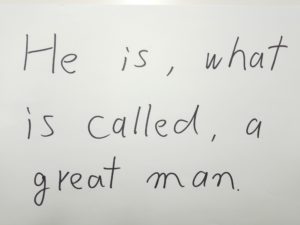 He is, what
is called, a
great man.